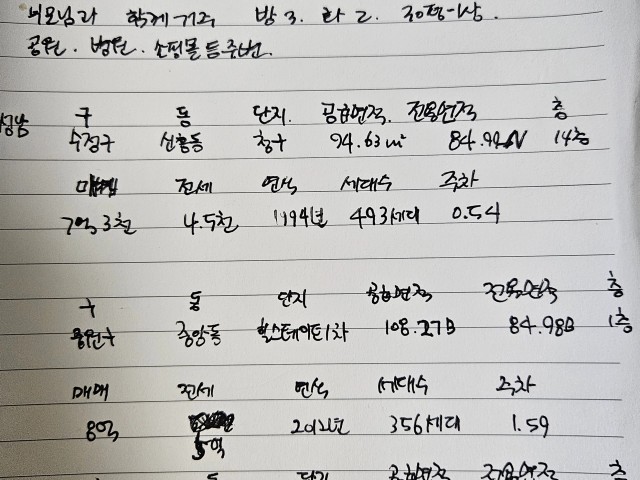 부모님과 함께 거주 방3. 화2. 30평이상.
공원. 병원. 쇼핑몰 등 주변.
성남 구 동 단지. 공급면적. 전용면적 층
수정구 신흥동 청구 94.63㎡ 84.99 14층
매매 전세 연식 세대수 주차
7억3천 4.5천 1994년 493세대 0.54
구 동 단지 공급면적 전용면적 층
중원구 중앙동 힐스테이트1차 108.27B 84.98B 1층
매매 전세 연식 세대수 주차
8억 5억 2012년 356세대 1.59
동 단지 공급면적 전용면적 층